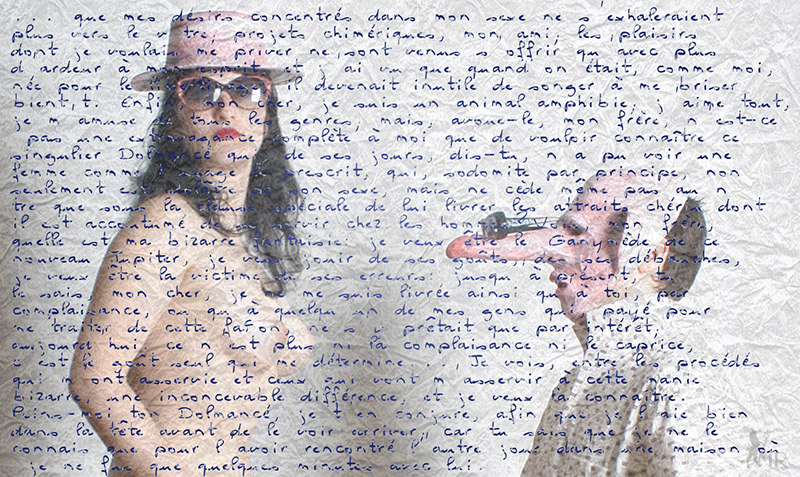 ... que mes désirs concentrés dans mon sexe ne s'exhaleraient
plus vers le vôtre; projets chimériques, mon ami; les plaisirs
dont je voulais me priver ne sont venus s'offrir qu'avec plus
d'ardeur à mon esprit et j'ai vu que quand on était, comme moi,
née pour le il devenait inutile de songer à me briser
bient,t. Enfin, mon cher, je suis un animal amphibie; j'aime tout,
je m'amuse de tous les genres; mais, avoue-le, mon frère, n'est-ce
pas une extravagance complète à moi que de vouloir connaître ce
singulier Dolmancé qui, de ses jours, dis-tu, n'a pu voir une
femme comme l'usage le prescrit, qui, sodomite par principe, non
seulement est de son sexe, mais ne cède même pas au n
tre que sous la clause spéciale de lui livrer les attraits chéris dont
il est accoutumé de se servir chez les hommes mon frère,
quelle est ma bizarre fantaisie: je veux être le Ganymède de ce
nouveau Jupiter, je veux jouir de ses goûts, de ses débauches,
je veux être la victime de ses erreurs: jusqu'à présent, tu
le sais, mon cher, je ne me suis livrée ainsi qu'à toi, par
complaisance, ou qu'à quelqu'un de mes gens qui, payé pour
me traiter de cette façon, ne s'y prêtait que par intérêt;
aujourd'hui, ce n'est plus ni la complaisance ni le caprice,
c'est le goût seul qui me détermine... Je vois, entre les procédés
qui m'ont asservie et ceux qui vont m'asservir à cette manie
bizarre, une inconcevable différence, et je veux la connaître.
Peins-moi ton Dolmancé, je t'en conjure, afin que je l'aie bien
dans la tête avant de le voir arriver; car tu sais que je ne le
connais que pour l'avoir rencontré l'autre jour dans une maison où
je ne fus que quelques minutes avec lui.
MR